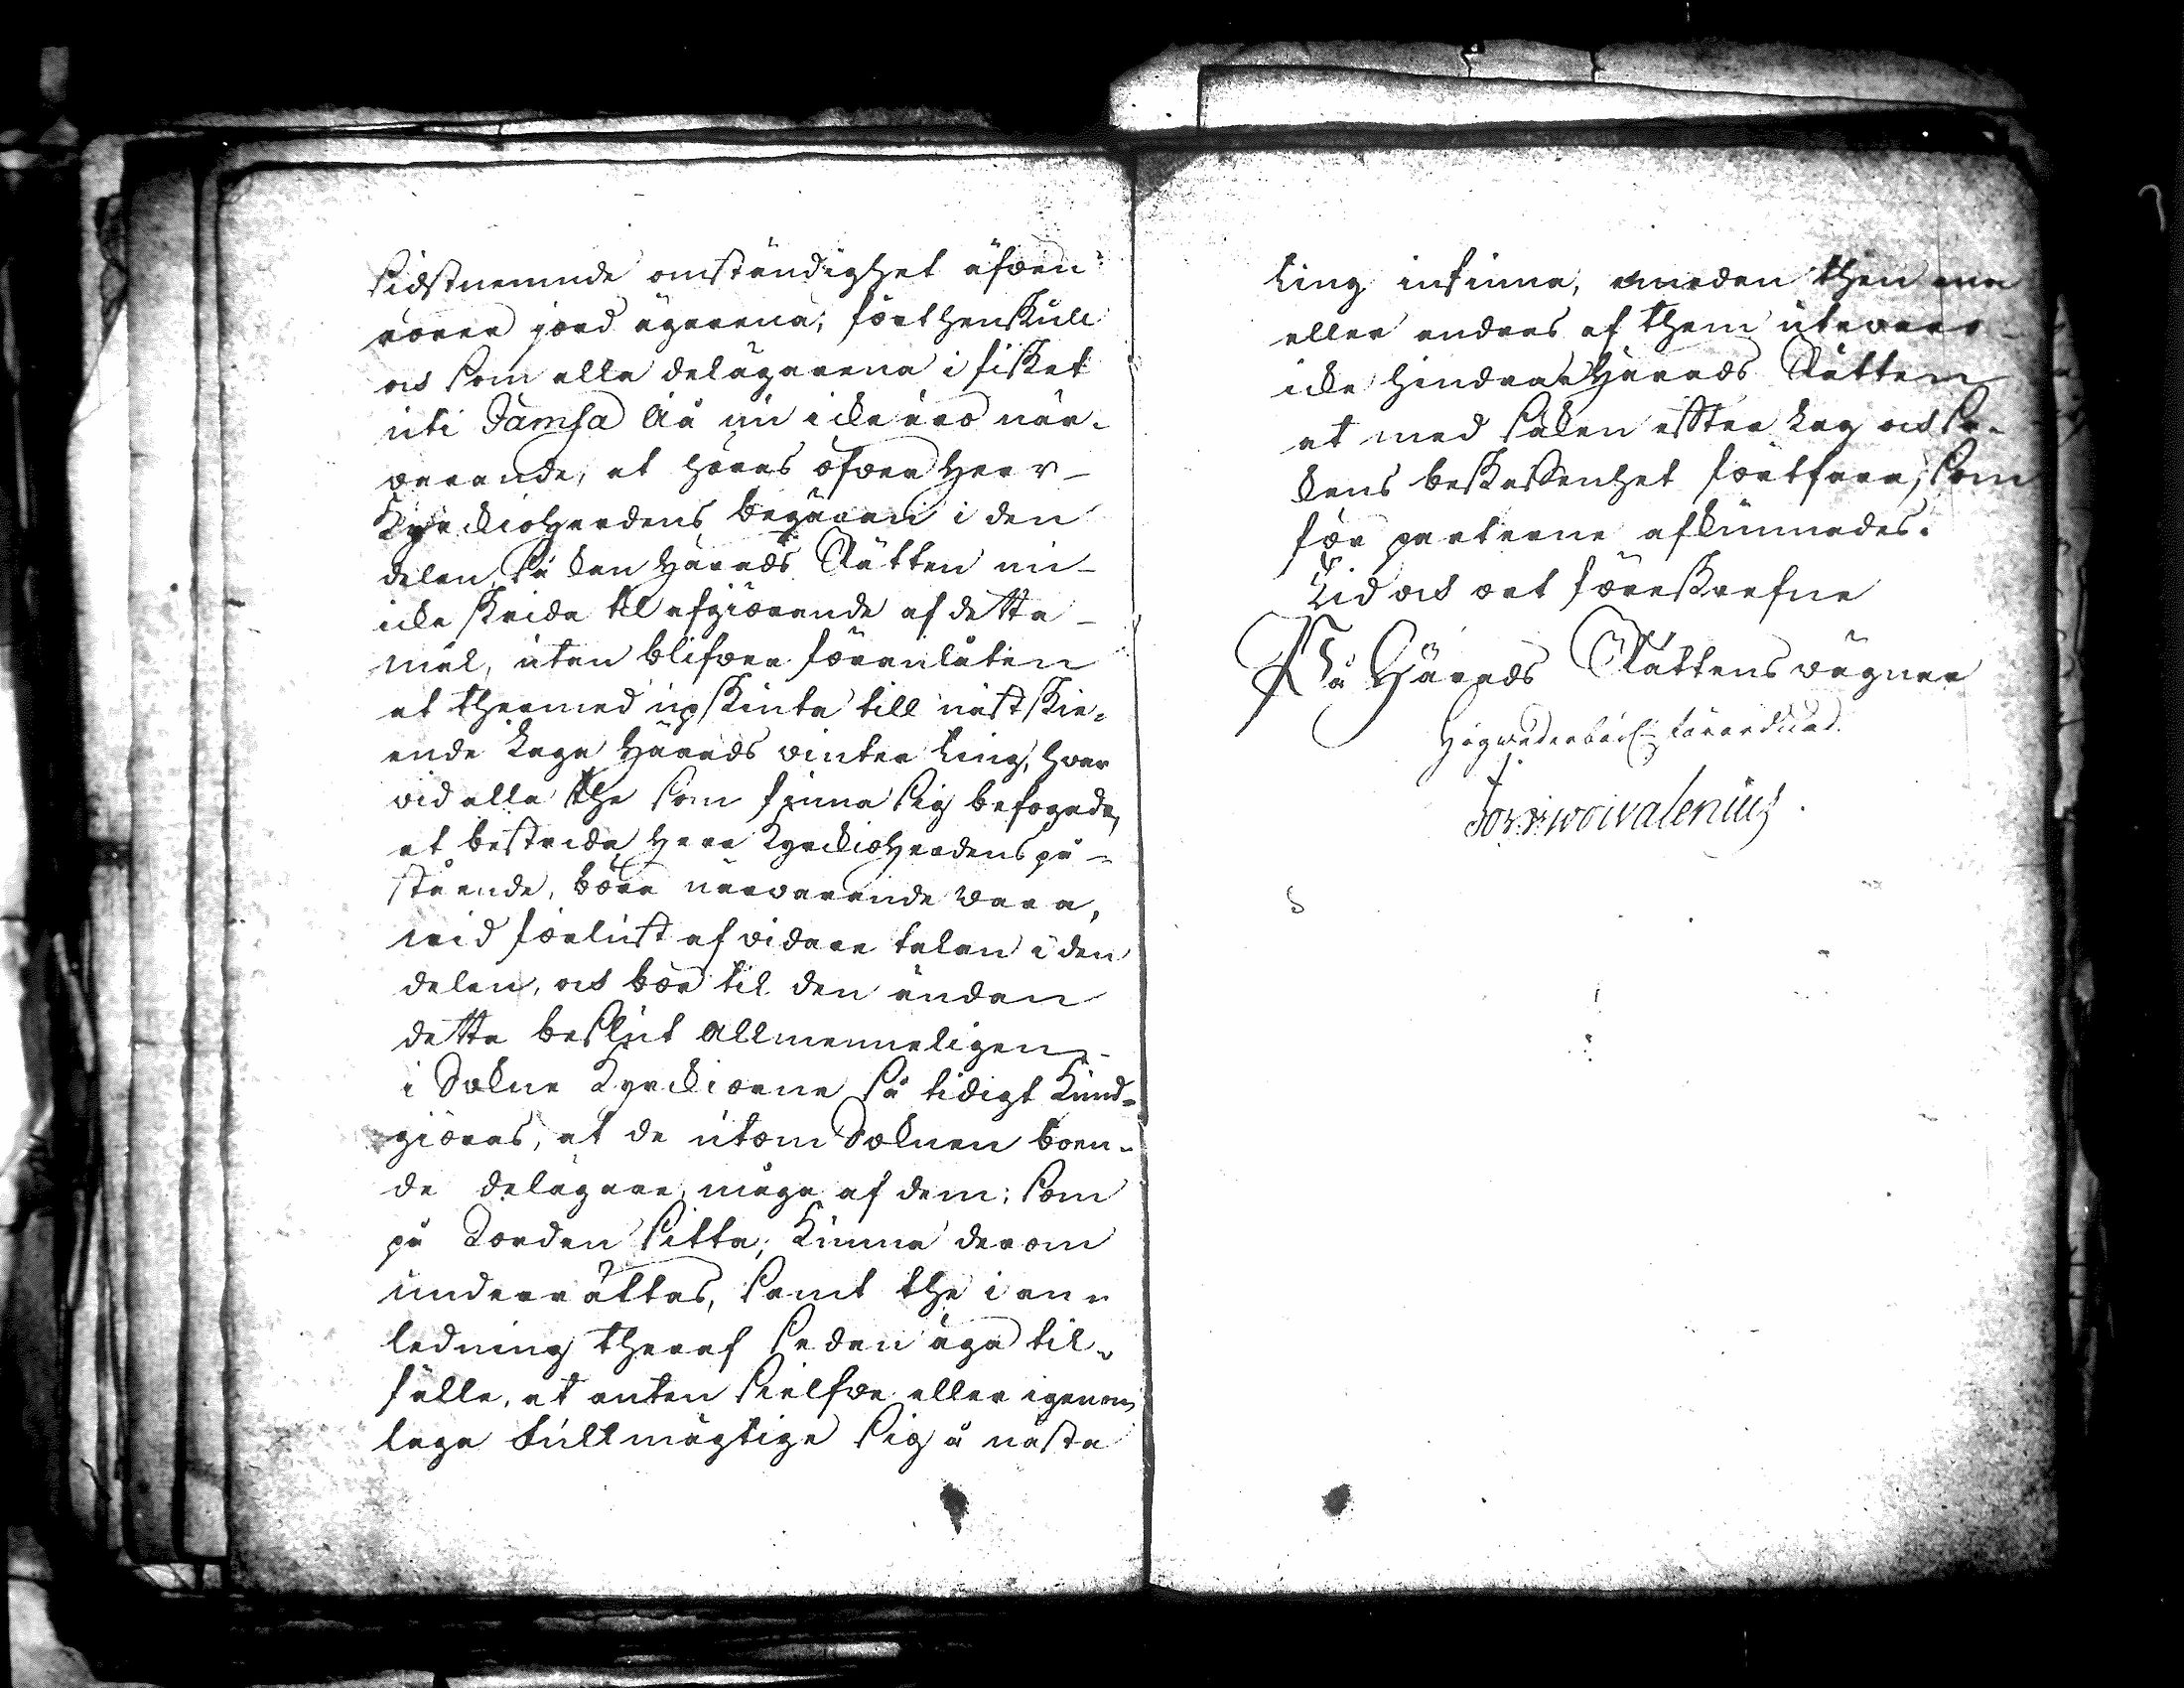 sidstnemnde omständighet äfven
rörer jord ägarena; förthenskull
och som alla delägarena i fisket
uti Jämsä Åå nu icke äro när-
varande, at höras öfver Herr
Kyrckioherdens begäran i den
delen, så kan Härads Rätten nu
icke skrida til afgiörande af detta
mål, utan blifver föranlåten
at thermed upskiuta till nästskie-
ende Laga Härads vinter ting, hvar
vid alla the som finna sig befogade,
at bestrida Herr Kyrckioherdens på-
stående, böra närvarande vara,
wid förlust af vidare talan i den
delen, och bör til den ändan
detta beslut allmenneligen
i Sokne Kyrckiorne så tidigt kund-
giöras, at de utom Soknen boen-
de delägare, måga af dem, som
på Jorden sitta, kunna derom
underrättas, samt the i an-
ledning theraf sedan äga til-
fälle, at anten sielfve eller igenom
laga fullmägtige sig å nästa
ting infinna, medan then ena
eller andras af them utevaro
icke hindrar Härads Rätten
at med saken efter Lag och Sa-
kens beskaffenhet fortfara; som
för parterne afkunnades.
Tid och ort föreskrefne
På Härads Rättens vägnar